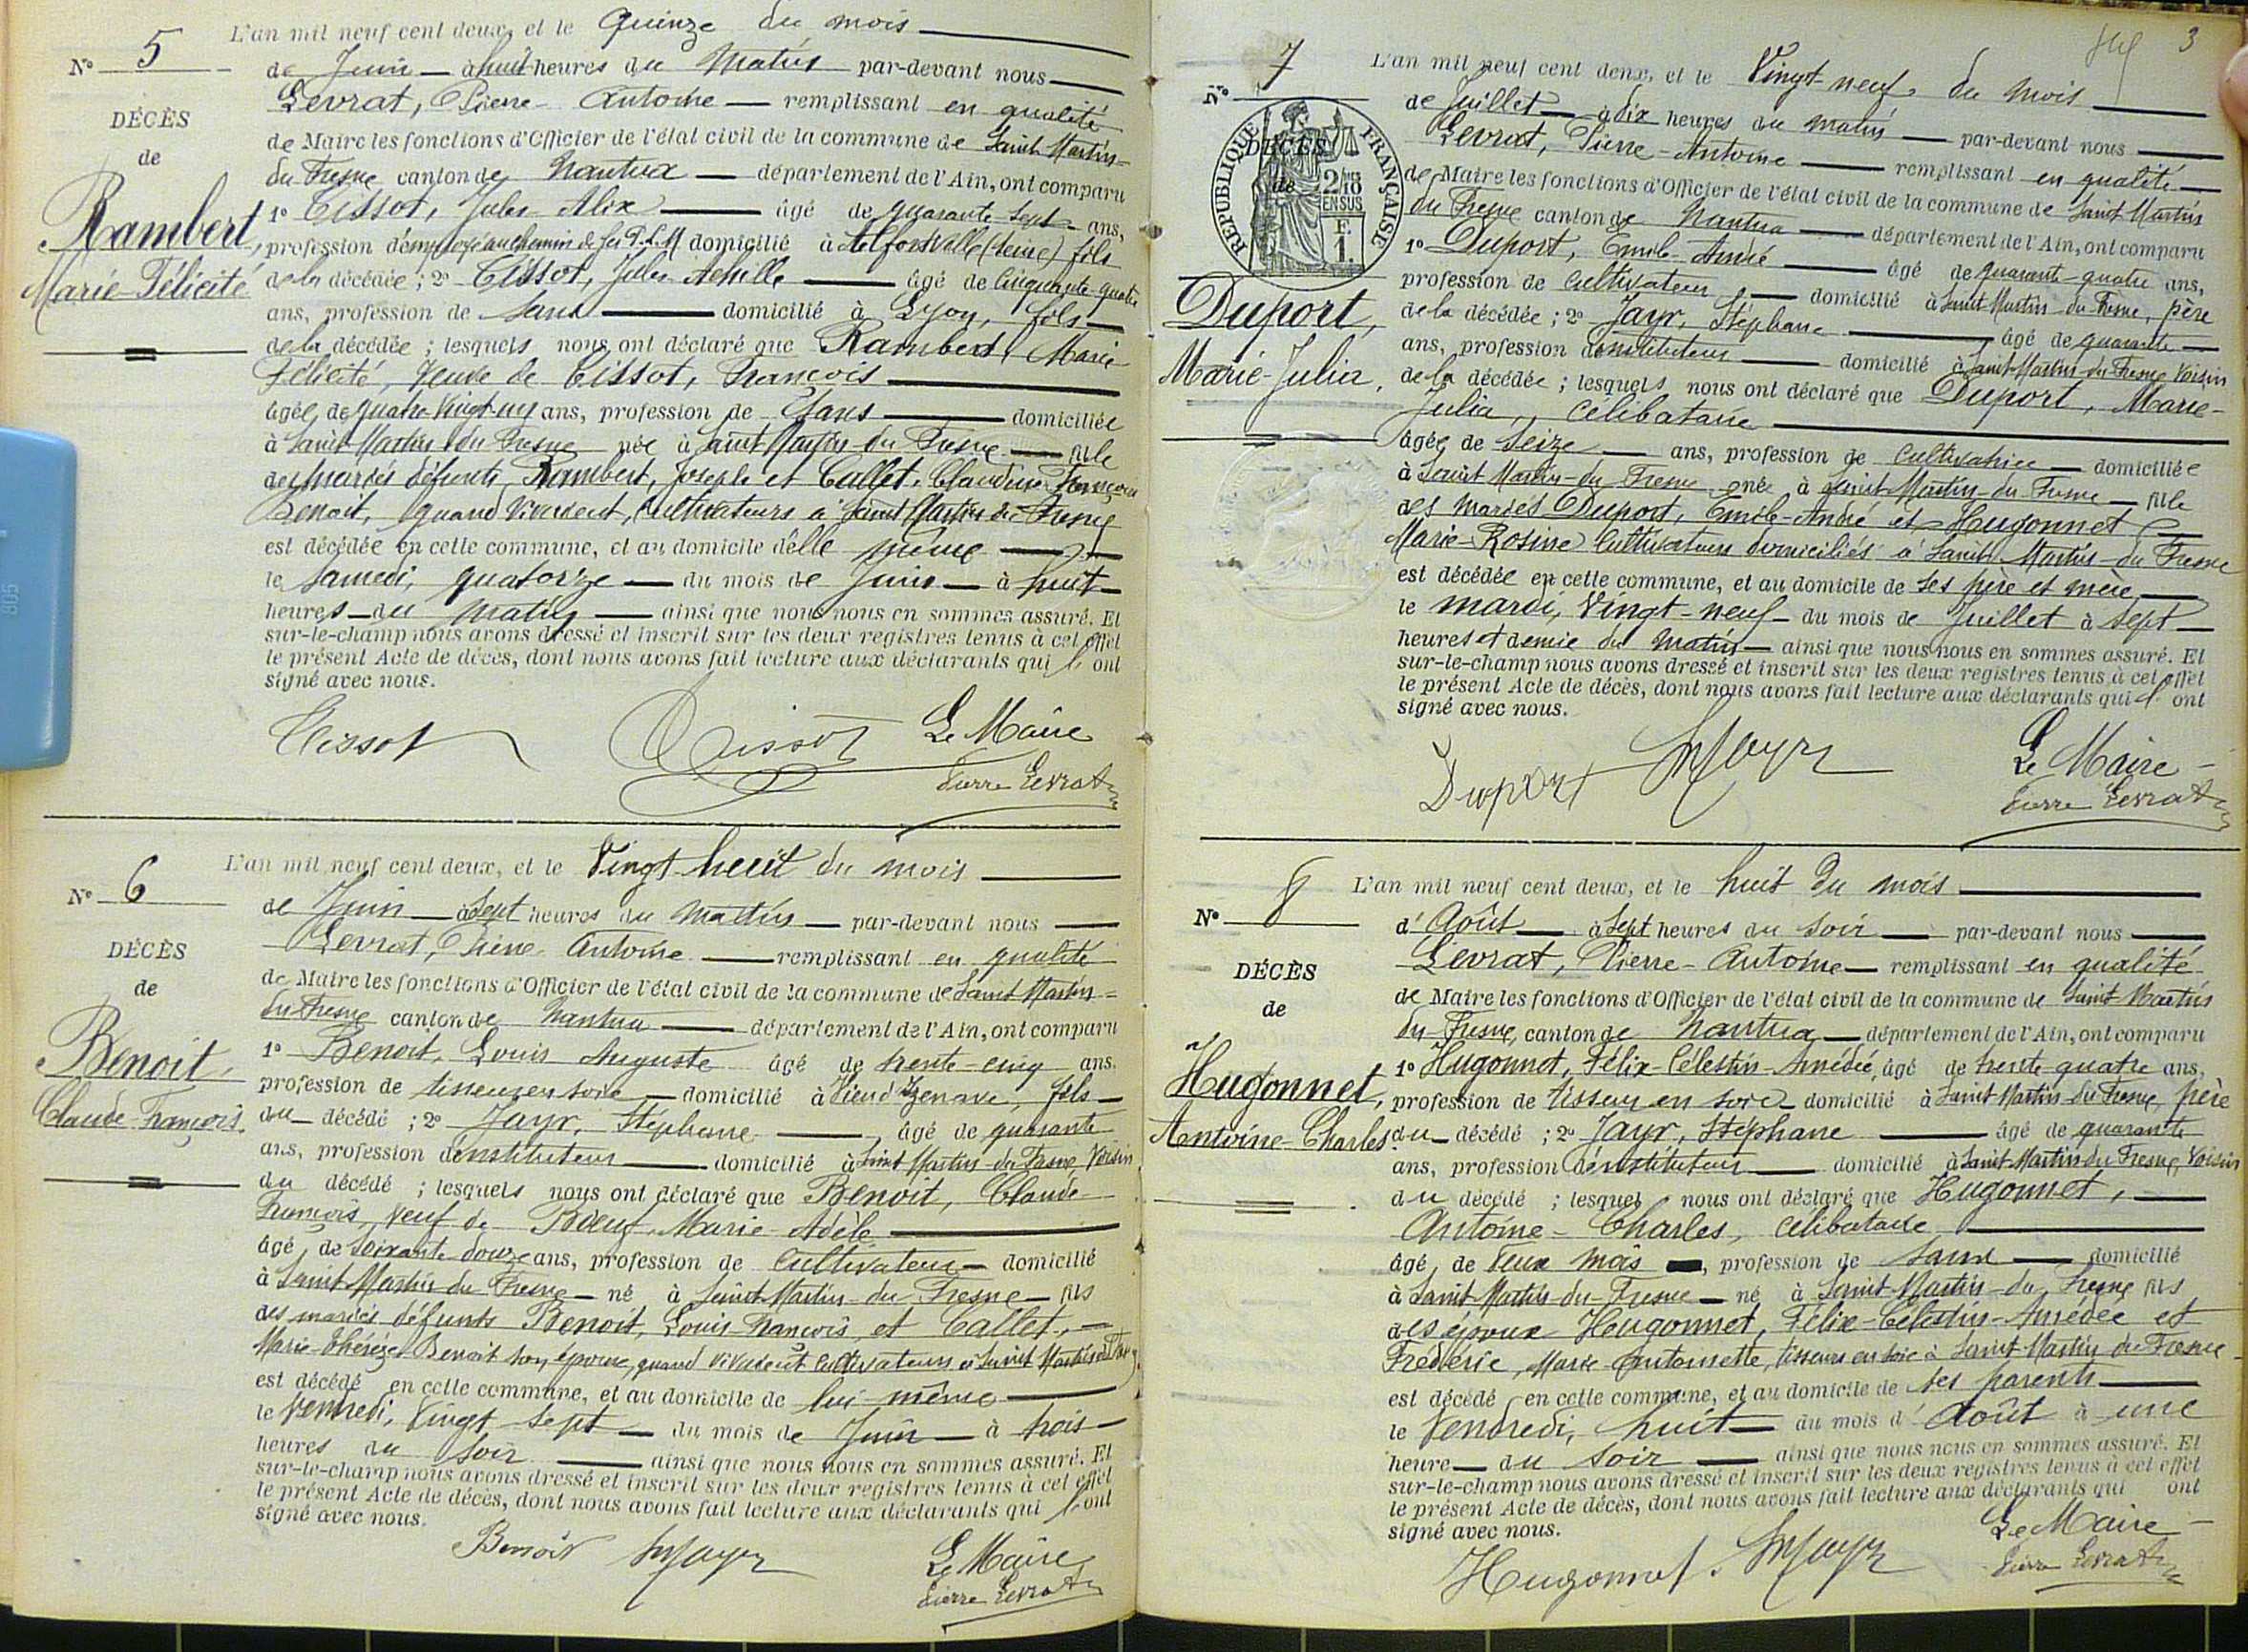 L'an mil neuf cent deux, et le quinze du mois
N° 5
de Juin à huit heures du matin par-devant nous
Levrat, Pierre-Antoine remplissant en qualité
DÉCÈS
de Maire les fonctions d'Officier de l'état civil de la commune de Saint-Martin-
de
du-Fresne canton de Nantua département de l'Ain, ont comparu
Rambert,
1° Tissot, Jules Alix âgé de quarante-sept ans,
profession d'employé au chemin de fer P.L.M domicilié à Alfortville (Seine) fils
Marie-Félicité
de la décédée ; 2° Tissot, Jules Achille âgé de cinquante-quatre
ans, profession de sans domicilié à Lyon, fils
de la décédée ; lesquels nous ont déclaré que Rambert, Marie
Félicité, Veuve de Tissot, François
âgée de quatre-vingt-un ans, profession de sans domiciliée
à Saint-Martin-du-Fresne née à Saint-Martin-du-Fresne fille
des mariés défunts Rambert, Joseph et Callet, Claudine Françoise
Benoit, quand vivaient, cultivateurs à Saint-Martin-du-Fresne
est décédée en cette commune, et au domicile d'elle même
le Samedi, quatorze du mois de Juin à huit
heures du matin ainsi que nous nous en sommes assuré. Et
sur-le-champ nous avons dressé et inscrit sur les deux registres tenus à cet effet
le présent Acte de décès, dont nous avons fait lecture aux déclarants qui l'ont
signé avec nous.
Tissot Tissot Le Maire
Pierre Levrat
L'an mil neuf cent deux, et le Vingt-huit du mois
N° 6
de Juin à sept heures du matin par-devant nous
Levrat, Pierre-Antoine remplissant en qualité
DÉCÈS
de Maire les fonctions d'Officier de l'état civil de la commune de Saint-Martin-
de
du-Fresne canton de Nantua département de l'Ain, ont comparu
Benoit,
1° Benoit, Louis Auguste âgé de trente-cinq ans,
profession de tisseur en soie domicilié à Vieu-d'Izenave, fils
Claude-François.
du décédé ; 2° Jayr, Stéphane âgé de quarante
ans, profession d'instituteur domicilié à Saint-Martin-du-Fresne, Voisin
du décédé ; lesquels nous ont déclaré que Benoit, Claude-
François, veuf de Boeuf, Marie-Adèle
âgé de soixante-douze ans, profession de cultivateur domicilié
à Saint-Martin-du-Fresne né à Saint-Martin-du-Fresne fils
des mariés défunts Benoit, Louis-François et Callet,
Marie-Thérèze Benoit son épouse, quand vivaient cultivateurs à Saint-Martin-du-Fresne
est décédé en cette commune, et au domicile de lui-même
le Vendredi, Vingt-sept du mois de Juin à trois
heures du soir ainsi que nous nous en sommes assuré. Et
sur-le-champ nous avons dressé et inscrit sur les deux registres tenus à cet effet
le présent Acte de décès, dont nous avons fait lecture aux déclarants qui l'ont
signé avec nous.
Benoit Jayr Le Maire
Pierre Levrat
3
N° 7
L'an mil neuf cent deux, et le Vingt-neuf du mois
de Juillet à dix heures du matin par-devant nous
Levrat, Pierre-Antoine remplissant en qualité
RÉPUBLIQUE FRANÇAISE
DÉCÈS
de
2/10
EN SUS
F.
1.
de Maire les fonctions d'Officier de l'état civil de la commune de Saint-Martin
du Fresne canton de Nantua département de l'Ain, ont comparu
1° Duport, Emile-André âgé de quarante-quatre ans,
profession de cultivateur domicilié à Saint-Martin-du-Fresne, père
Duport,
de la décédée ; 2° Jayr, Stéphane âgé de quarante
ans, profession d'instituteur domicilié à Saint-Martin-du-Fresne Voisin
Marie-Julia.
de la décédée ; lesquels nous ont déclaré que Duport, Marie-
Julia, célibataire
âgée de seize ans, profession de cultivatrice domiciliée
à Saint-Martin-du-Fresne née à Saint-Martin-du-Fresne fille
des mariés Duport, Emile-André et Hugonnet
Marie-Rosine cultivateurs domiciliés à Saint-Martin-du-Fresne
est décédée en cette commune, et au domicile de ses père et mère
le mardi, Vingt-neuf du mois de Juillet à sept
heures et demie du matin ainsi que nous nous en sommes assuré. Et
sur-le-champ nous avons dressé et inscrit sur les deux registres tenus à cet effet
le présent Acte de décès, dont nous avons fait lecture aux déclarants qui l'ont
signé avec nous.
Duport Jayr Le Maire
Pierre Levrat
L'an mil neuf cent deux, et le huit du mois
N° 8
d'Août à sept heures du soir par-devant nous
Levrat, Pierre-Antoine remplissant en qualité
DÉCÈS
de Maire les fonctions d'Officier de l'état civil de la commune de Saint-Martin
de
du-Fresne, canton de Nantua département de l'Ain, ont comparu
Hugonnet,
1° Hugonnet, Félix-Célestin-Amédée, âgé de trente-quatre ans,
profession de tisseur en soie domicilié à Saint-Martin-du-Fresne, père
Antoine-Charles.
du décédé ; 2° Jayr, Stéphane âgé de quarante
ans, profession d'instituteur domicilié à Saint-Martin-du-Fresne, Voisin
du décédé ; lesquels nous ont déclaré que Hugonnet,
Antoine-Charles, célibataire
âgé de deux mois, profession de sans domicilié
à Saint-Martin-du-Fresne né à Saint-Martin-du-Fresne fils
des époux Hugonnet, Félix-Célestin-Amédée et
Fréderic, Marie-Antoinette, tisseurs en soie à Saint-Martin-du-Fresne
est décédé en cette commune, et au domicile de ses parents
le Vendredi, huit du mois d'Août à une
heure du soir ainsi que nous nous en sommes assuré. Et
sur-le-champ nous avons dressé et inscrit sur les deux registres tenus à cet effet
le présent Acte de décès, dont nous avons fait lecture aux déclarants qui ont
signé avec nous.
Hugonnet. Jayr Le Maire
Pierre Levrat